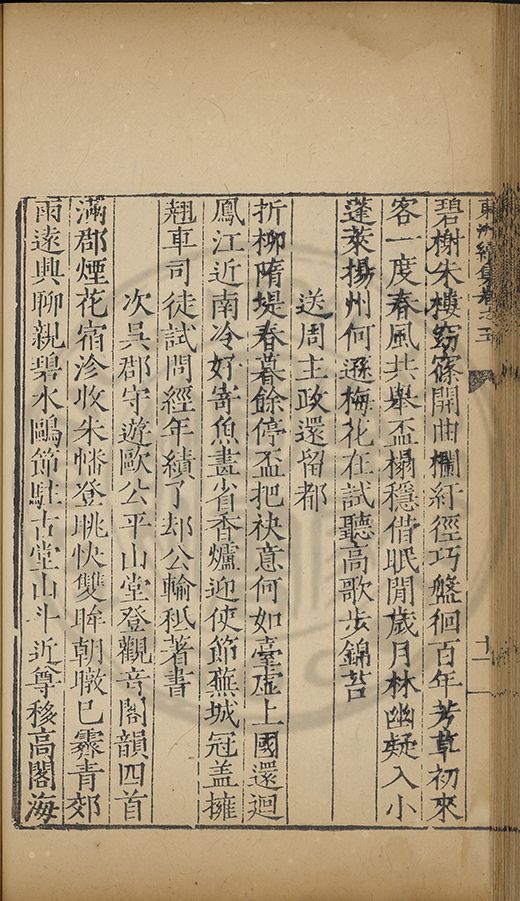 東洲續集卷之五
十一
碧榭朱樓窈窱開曲欄紆徑巧盤徊百年芳草初來
客一度春風共舉盃榻穩借眠閒歲月林幽疑入小
蓬萊揚州何遜梅花在試聽高歌步錦苔
送周主政還留都
折柳隋堤春暮餘停盃把袂意何如臺虛上國還迴
鳳江近南泠好寄魚畫省香爐迎使節蕪城冠盖擁
翹車司徒試問經年績了却公輸秪著書
次吳郡守遊歐公平山堂登觀音閣韻四首
滿郡煙花宿沴收朱幡登眺快雙眸朝暾已霽青郊
雨遠興聊親碧水鷗節駐古堂山斗近尊移高閣海